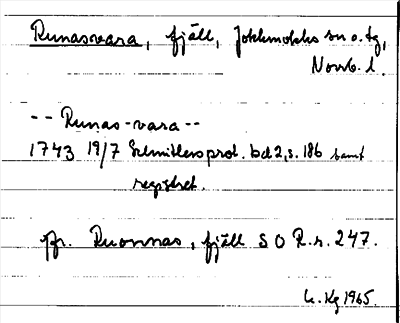 Runasvara, fjäll, Jokkmokks sn o. tg,
Norrb. l.
-- Runas-vara --
1743 19/7 Schnitlers prot. bd 2, s. 186 samt
registret.
jfr. Ruonnas, fjäll S O R. s. 247.
1965.